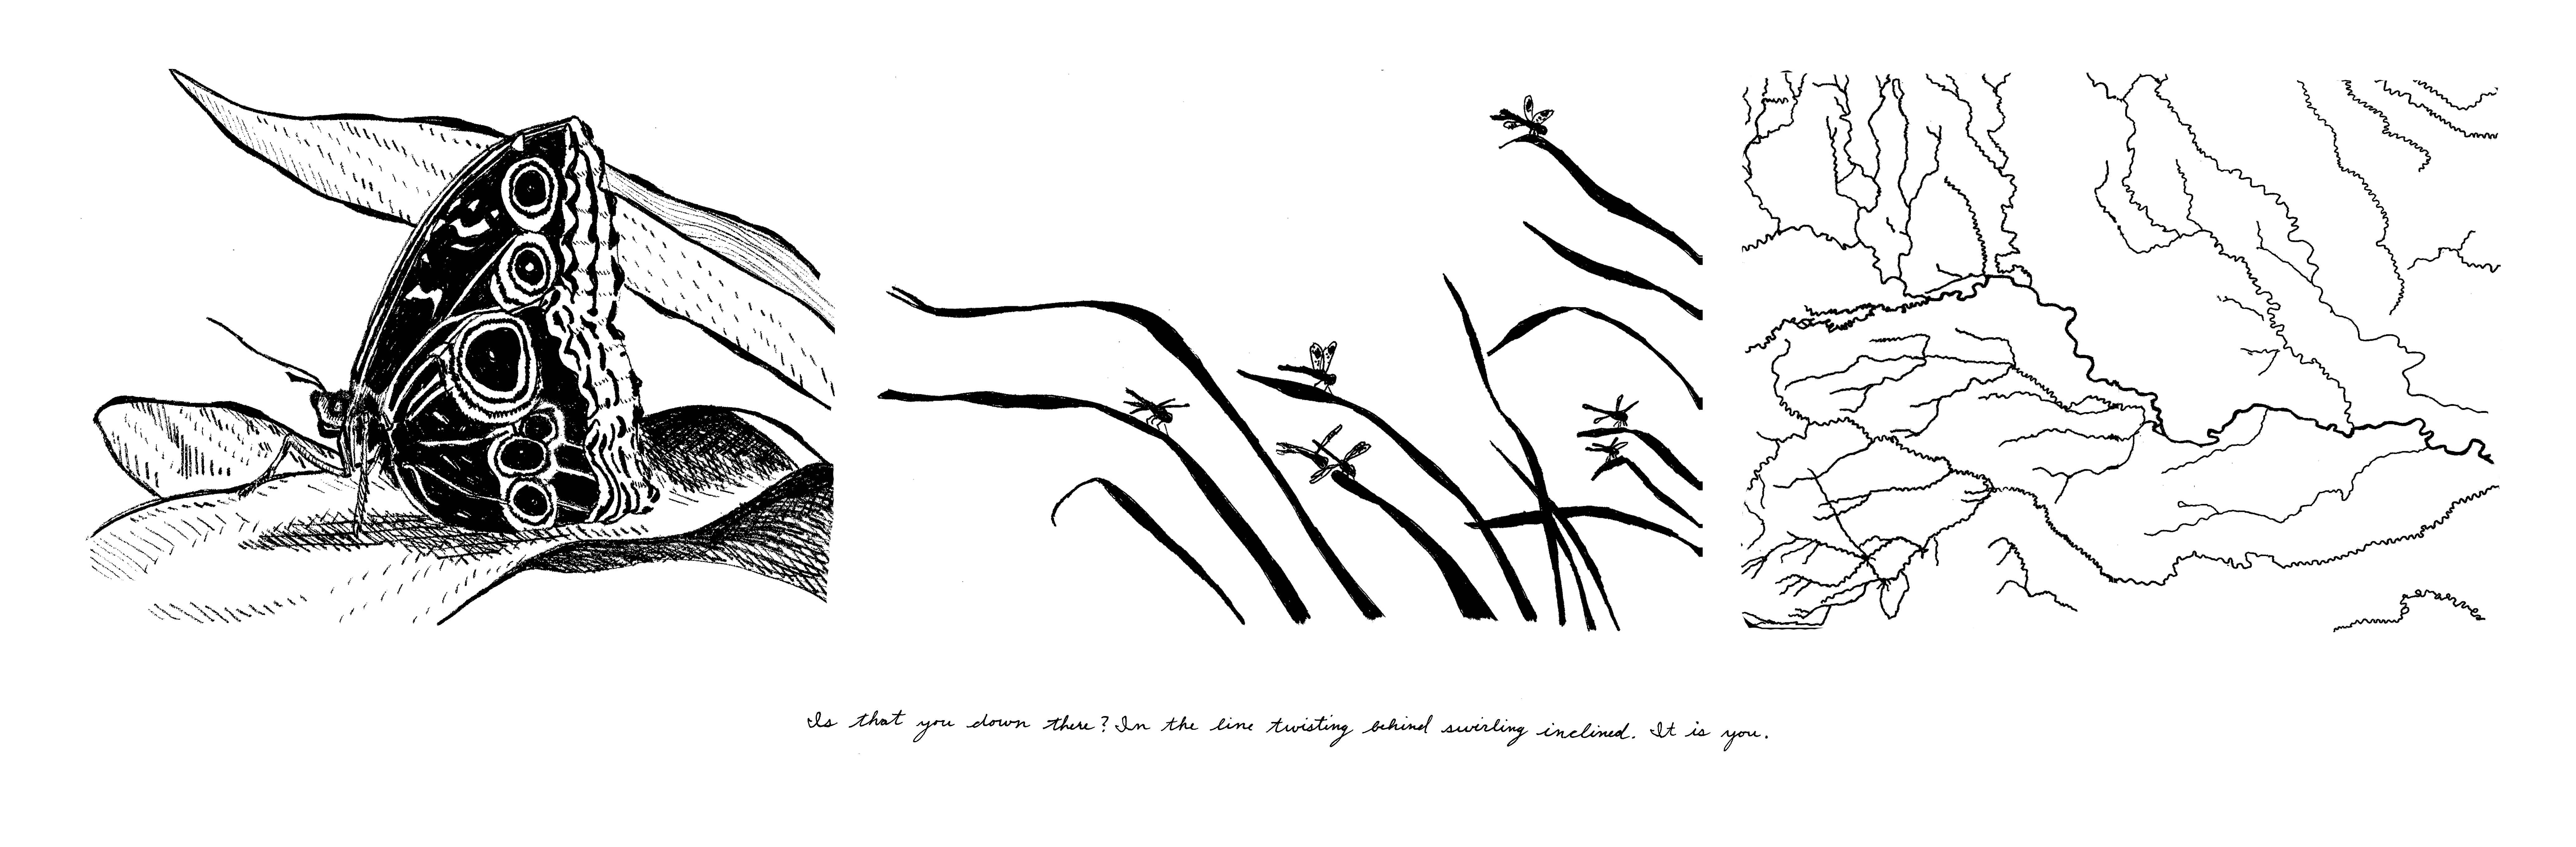 Is that you down there? In the line twisting behind swirling inclined. It is you.